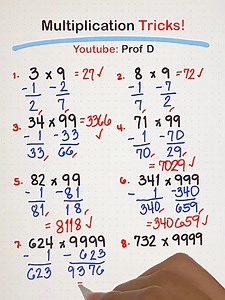 Multiplication Tricks!
Youtube: Prof D
1. 3 x 9 = 27 ✓
-1 -2
2, 7
2. 8 x 9 = 72 ✓
-1 -7
7, 2
3. 34 x 99 = 3366
-1 -33
33, 66
4. 71 x 99
-1 -70
70, 29
= 7029 ✓
5. 82 x 99
-1 -81
81, 18
= 8118 ✓
6. 341 x 999
-1 -340
340, 659
= 340659 ✓
7. 624 x 9999
-1 -623
623 9376
=
8. 732 x 9999